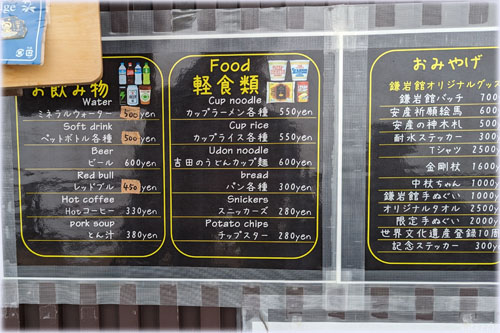 お飲み物
Water
ミネラルウォーター 300yen
Soft drink
ペットボトル各種 500yen
Beer
ビール 600yen
Red bull
レッドブル 450yen
Hot coffee
Hotコーヒー 330yen
pork soup
とん汁 380yen
Food
軽食類
Cup noodle
カップラーメン各種 550yen
Cup rice
カップライス各種 550yen
Udon noodle
吉田のうどんカップ麺 600yen
bread
パン各種 300yen
Snickers
スニッカーズ 280yen
Potato chips
チップスター 280yen
おみやげ
鎌岩館オリジナルグッズ
鎌岩館バッチ 700
安産祈願絵馬 600
安産の神木札 500
耐水ステッカー 300
Tシャツ 2500
金剛杖 1600
中杖ちゃん 1000
鎌岩館手ぬぐい 1000
オリジナルタオル 2500
限定手ぬぐい 2000
世界文化遺産登録10周
記念ステッカー 300